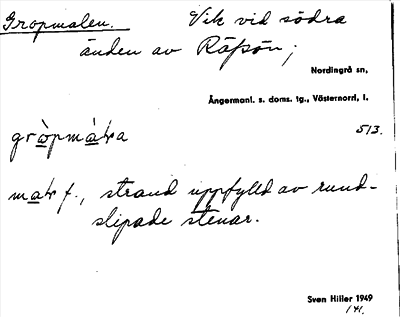 Gropmalen. Vik vid södra
änden av Räfsön;
Nordingrå sn,
Ångermanl. s. doms. tg., Västernorrl. l.
513.
f., strand uppfylld av rund-
slipade stenar.
Sven Hiller 1949
141.